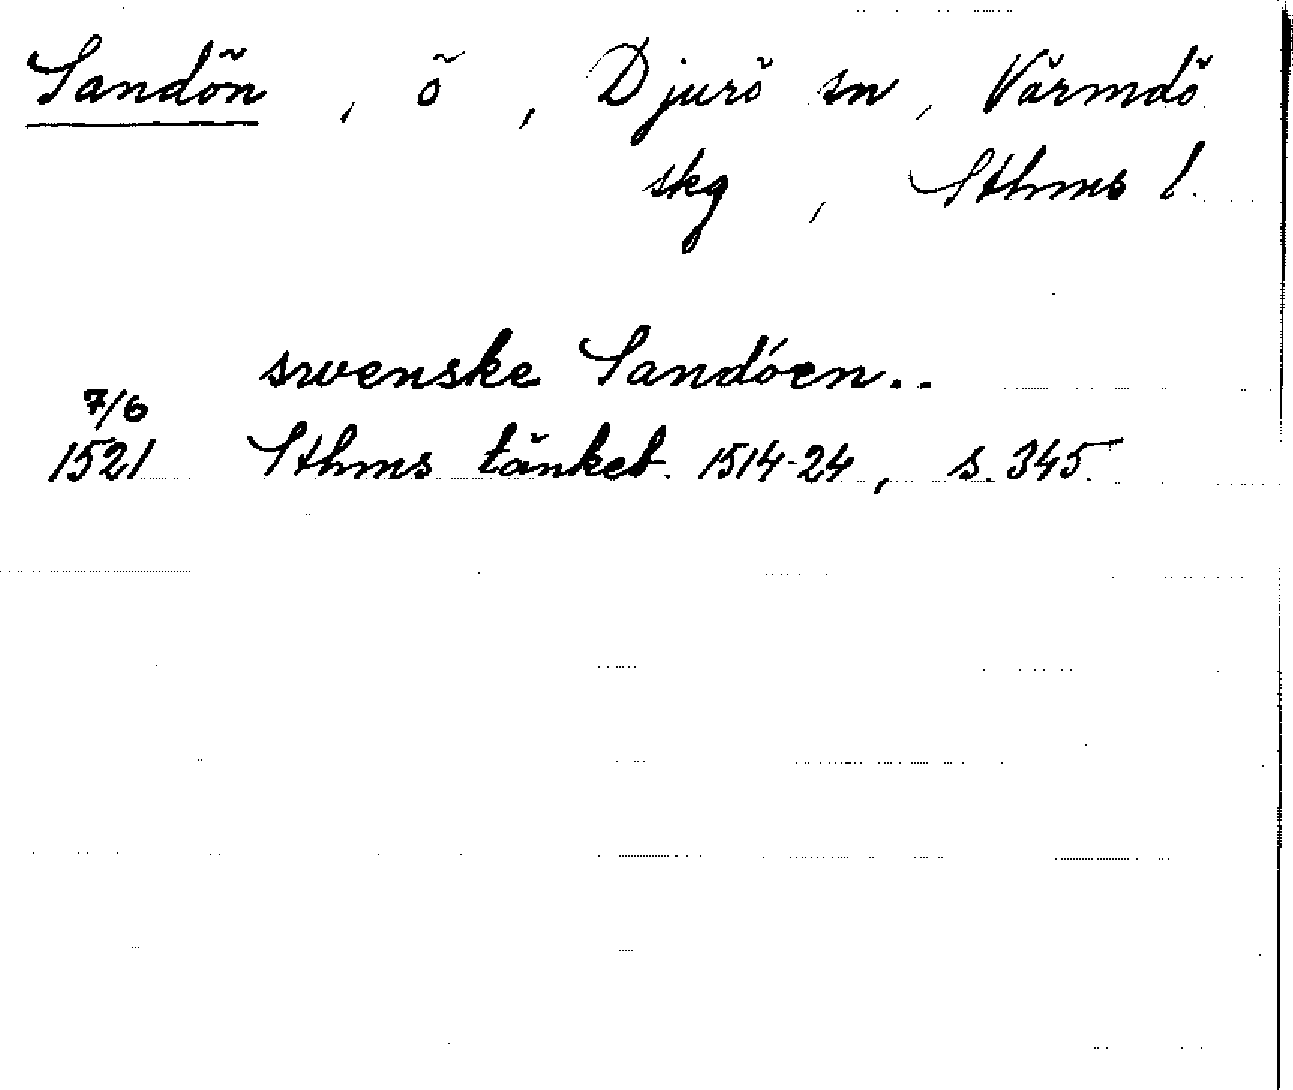 Sandön, ö, Djurö sn, Värmdö
skg, Sthms l.
swenske Sandóen..
7/6
1521 Sthms tänkeb. 1514-24, s. 345.